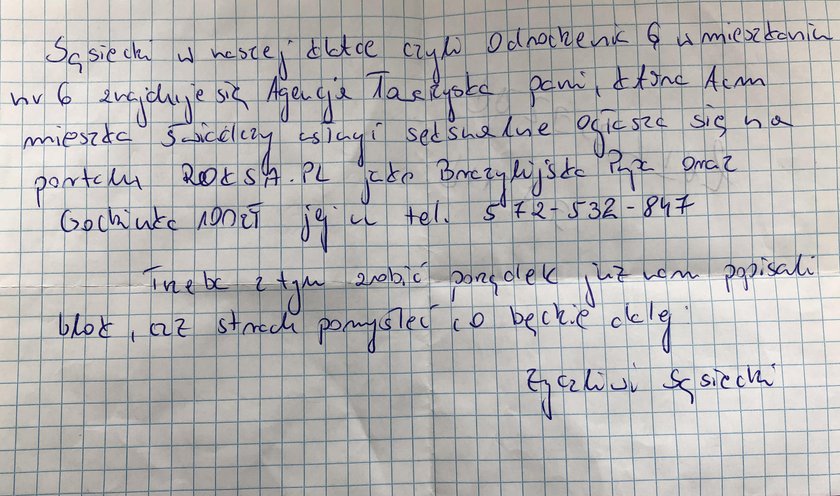 Sąsiedzi w naszej klatce czyli Odnoczenia 6 w mieszkaniu
nr 6 znajduje się Agencja Taczyska pani, która tam
mieszka świadczy usługi seksualne ogłasza się na
portalu ROKSA.PL jako Brazylijska Pyza oraz
Godzinka 100zł jej u tel. 572-532-847
Trzeba z tym zrobić porządek już nam popisali
blok, aż strach pomyśleć co będzie dalej
Życzliwi Sąsiedzi